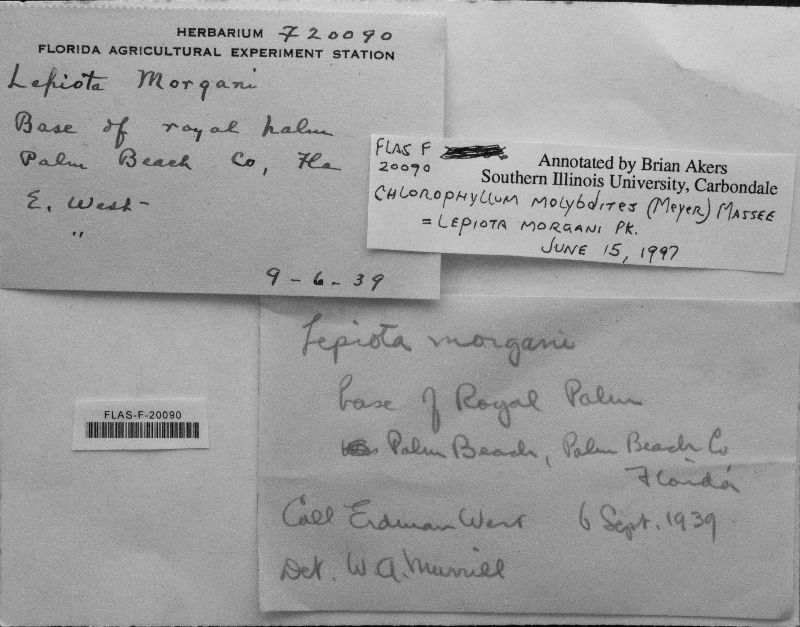 HERBARIUM F20090
FLORIDA AGRICULTURAL EXPERIMENT STATION
Lepiota Morgani
Base of royal palm
Palm Beach Co, Fla
E. West-
"
9-6-39
FLAS F
20090
Annotated by Brian Akers
Southern Illinois University, Carbondale
CHLOROPHYLLUM MOLYBDITES (MEYER) MASSEE
= LEPIOTA MORGANI PK.
JUNE 15, 1997
FLAS-F-20090
Lepiota morgani
base of Royal Palm
Palm Beach, Palm Beach Co
Florida
Coll Erdman West 6 Sept. 1939
Det. W. A. Murrill